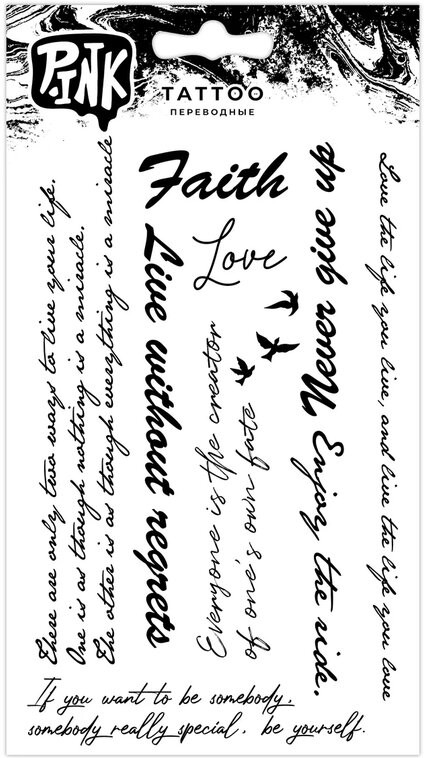 P.INK
TATTOO
ПЕРЕВОДНЫЕ
There are only two ways to live your life.
One is as though nothing is a miracle.
The other is as though everything is a miracle
Faith
Live without regrets
Love
Everyone is the creator
of one's own fate
Never give up
Enjoy the ride.
Love the life you live, and live the life you love
If you want to be somebody,
somebody really special, be yourself.